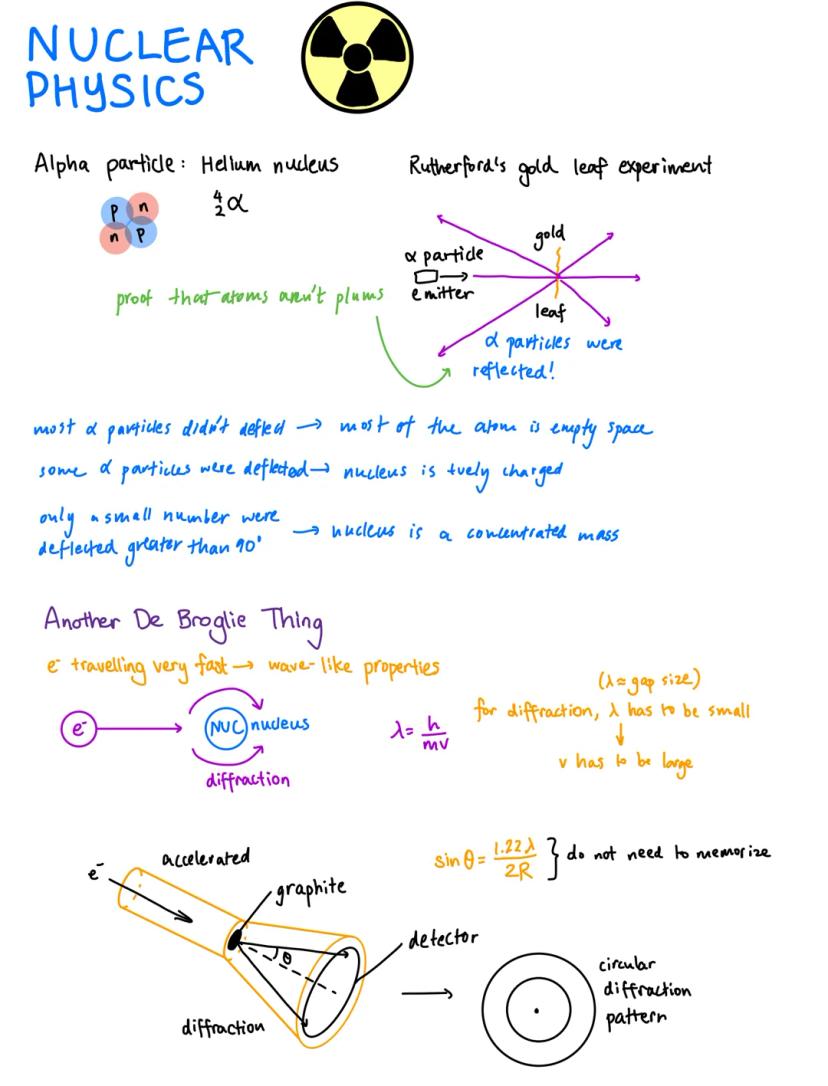 NUCLEAR
PHYSICS
Alpha particle: Helium nucleus
p n
n p
⁴₂α
Rutherford's gold leaf experiment
α particle
emitter
gold
leaf
α particles were
reflected!
proof that atoms aren't plums
most α particles didn't deflect → most of the atom is empty space
some α particles were deflected → nucleus is +vely charged
only a small number were
deflected greater than 90° → nucleus is a concentrated mass
Another De Broglie Thing
e⁻ travelling very fast → wave-like properties
e⁻
NUC nucleus
diffraction
λ = h/mv
(λ ≈ gap size)
for diffraction, λ has to be small
↓
v has to be large
sin θ = 1.22λ/2R } do not need to memorize
e⁻
accelerated
graphite
θ
detector
diffraction
circular
diffraction
pattern